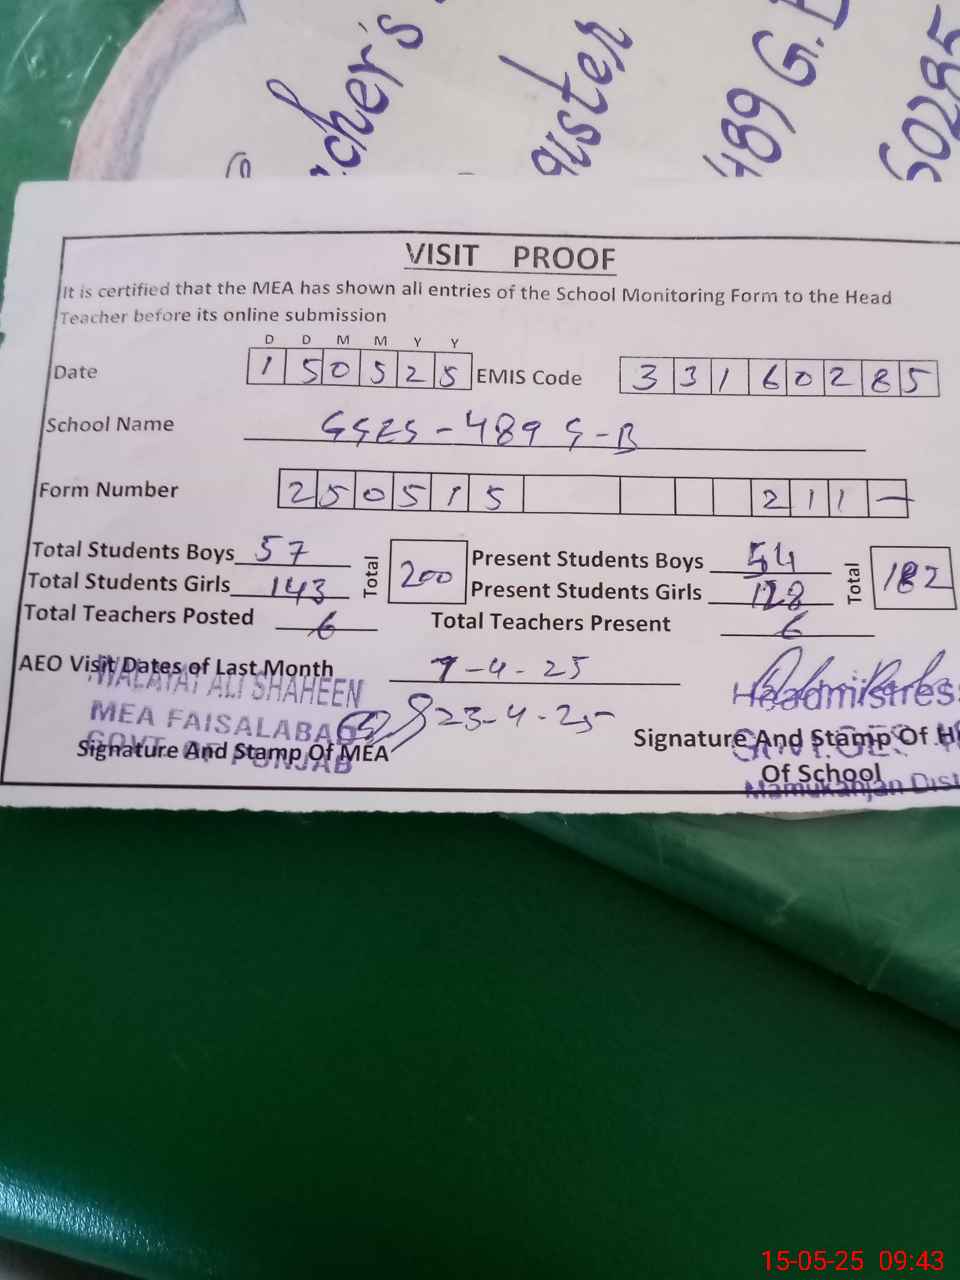 cher's
ister
489 G.B
60285
VISIT PROOF
It is certified that the MEA has shown all entries of the School Monitoring Form to the Head
Teacher before its online submission
D D M M Y Y
Date 1 5 0 5 2 5 EMIS Code 3 3 1 6 0 2 8 5
School Name GGES - 489 G-B
Form Number 2 5 0 5 1 5 2 1 1 -
Total Students Boys 57 Total 200 Present Students Boys 54 Total 182
Total Students Girls 143 Present Students Girls 128
Total Teachers Posted 6 Total Teachers Present 6
AEO Visit Dates of Last Month 7-4-25
23-4-25
WALAYAT ALI SHAHEEN
MEA FAISALABAD
GOVT. OF PUNJAB
Signature And Stamp Of MEA
Headmistres
Signature And Stamp Of H
Govt. GES
Of School
Mamukanjan Dist
15-05-25 09:43